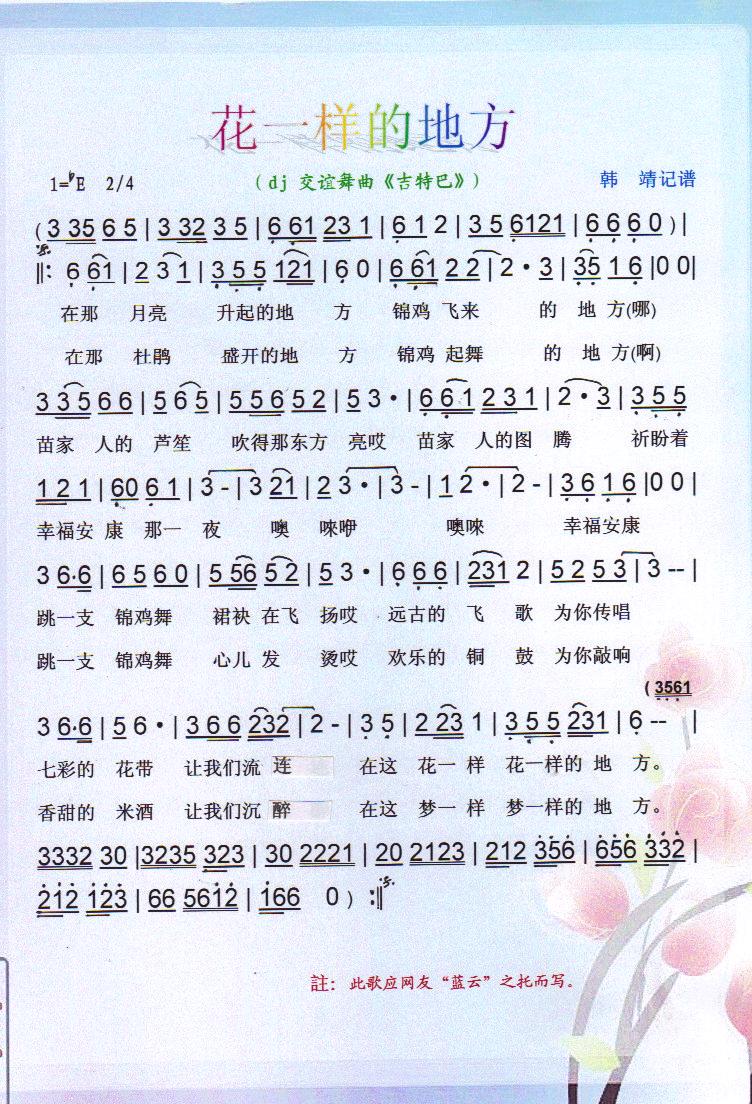 花一样的地方
1=♭E 2/4 （dj 交谊舞曲《吉特巴》） 韩 靖记谱
( 3 35 6 5 | 3 32 3 5 | 6 61 23 1 | 6 1 2 | 3 5 6121 | 6 6 6 0 ) |
‖: 6 61 | 2 3 1 | 3 5 5 121 | 6 0 | 6 61 2 2 | 2 · 3 | 35 1 6 |0 0|
在那 月亮 升起的地 方 锦鸡 飞来 的 地 方(哪)
在那 杜鹃 盛开的地 方 锦鸡 起舞 的 地 方(啊)
3 3 5 6 6 | 5 6 5 | 5 5 6 5 2 | 5 3 · | 6 6 1 2 3 1 | 2 · 3 | 3 5 5
苗家 人的 芦笙 吹得那东方 亮哎 苗家 人的图 腾 祈盼着
1 2 1 | 60 6 1 | 3 - | 3 21 | 2 3 · | 3 - | 1 2 · | 2 - | 3 6 1 6 |0 0 |
幸福安 康 那一 夜 噢 唻咿 噢唻 幸福安康
3 6·6 | 6 5 6 0 | 5 56 5 2 | 5 3 · | 6 6 6 | 231 2 | 5 2 5 3 | 3 -- |
跳一支 锦鸡舞 裙袂 在飞 扬哎 远古的 飞 歌 为你传唱
跳一支 锦鸡舞 心儿 发 烫哎 欢乐的 铜 鼓 为你敲响
( 3561
3 6·6 | 5 6 · | 3 6 6 232 | 2 - | 3 5 | 2 23 1 | 3 5 5 231 | 6 -- |
七彩的 花带 让我们流 连 在这 花一 样 花一样的 地 方。
香甜的 米酒 让我们沉 醉 在这 梦一 样 梦一样的 地 方。
3332 30 |3235 323 | 30 2221 | 20 2123 | 212 356 | 656 332 |
212 123 | 66 5612 | 166 0 ) :‖
註：此歌应网友“蓝云”之托而写。